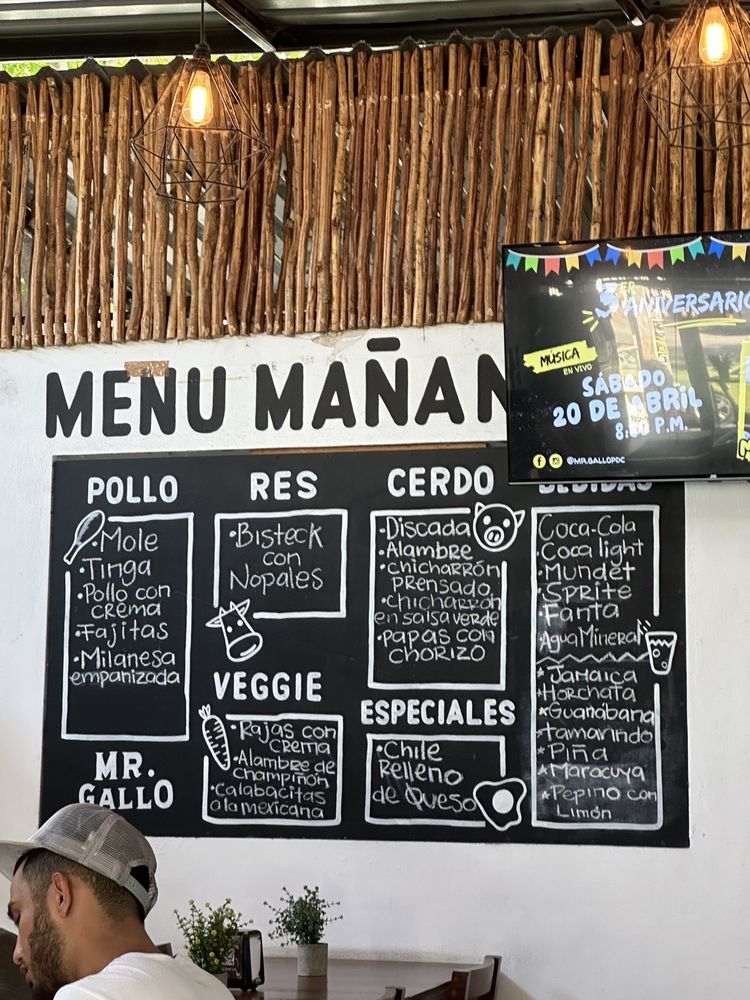 MENU MAÑAN
3ER ANIVERSARIO
MÚSICA
EN VIVO
SÁBADO
20 DE ABRIL
8:00 P.M.
@MR.GALLOPDC
POLLO
•Mole
•Tinga
•Pollo con
crema
•Fajitas
•Milanesa
empanizada
MR.
GALLO
RES
•Bisteck
con
Nopales
VEGGIE
•Rajas con
crema
•Alambre de
champiñon
•Calabacitas
a la mexicana
CERDO
•Discada
•Alambre
•chicharrón
prensado
•chicharron
en salsa verde
•papas con
chorizo
ESPECIALES
•Chile
Relleno
de Queso
BEBIDAS
Coca-Cola
•Coca light
•Mundet
•Sprite
•Fanta
Agua Mineral
*Jamaica
*Horchata
*Guanábana
*tamarindo
*Piña
*Maracuya
*Pepino con
Limón